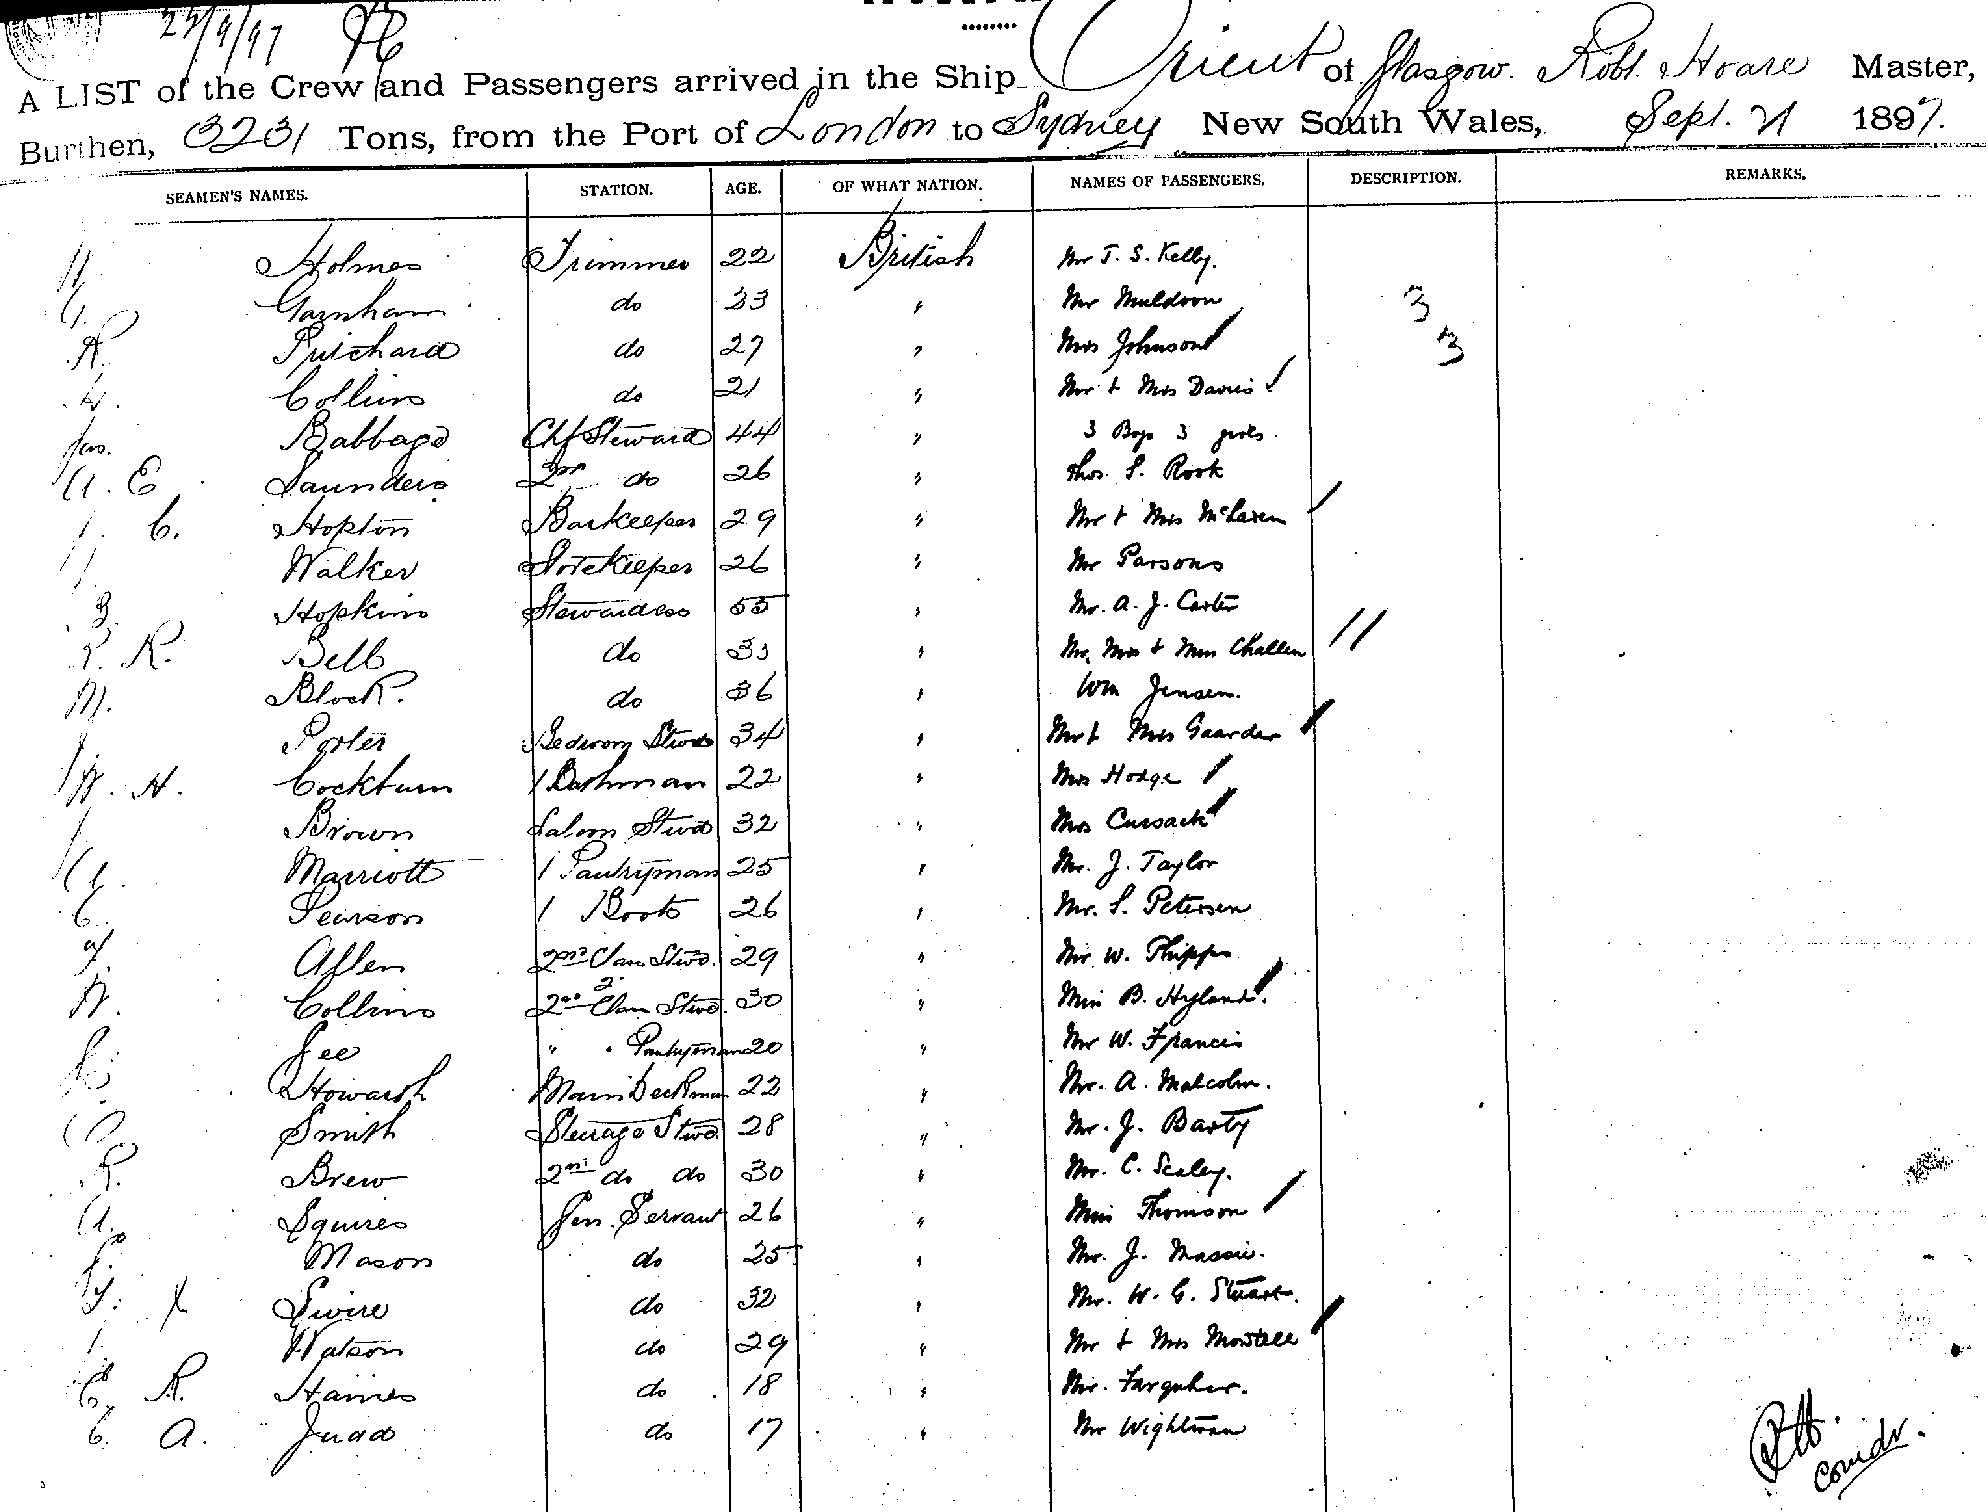 27/9/97
A LIST of the Crew and Passengers arrived in the Ship Orient of Glasgow. Robt. Hoare Master,
Burthen, 3231 Tons, from the Port of London to Sydney New South Wales, Sept. 21 1897.
SEAMEN'S NAMES. STATION. AGE. OF WHAT NATION. NAMES OF PASSENGERS. DESCRIPTION. REMARKS.
H. Holmes Trimmer 22 British Mr T. S. Kelly.
G. Garnham do 33 " Mr Muldoon 3
R. Pritchard do 27 " Mrs Johnson 3
Collins do 21 " Mr & Mrs Davis
Jas. Babbage Chf Steward 44 " 3 Boys 3 girls.
A. E. Saunders 2nd do 26 " Thos. S. Rook
C. Hopton Barkeeper 29 " Mr & Mrs McLaren
Walker Storekeeper 26 " Mr Parsons
B. Hopkins Stewardess 55 " Mr. A. J. Carter
R. Bell do 33 " Mr, Mrs & Miss Challen
M. Block. do 36 " Wm Jensen.
Porter Bedroom Stwd 34 " Mr & Mrs Gaarder
W. H. Cockburn 1 Bathman 22 " Mrs Hodge
Brown Saloon Stwd 32 " Mrs Cussack
Marriott 1 Pantryman 25 " Mr. J. Taylor
C. Pearson 1 Boots 26 " Mr. S. Petersen
Allen 2nd Class Stwd. 29 " Mr W. Phipps
W. Collins 2nd Class Stwd. 30 " Miss B. Hyland.
Gee " " Pantryman 20 " Mr W. Francis
Howarth Main Deckman 22 " Mr. A. Malcolm.
Smith Steerage Stwd. 28 " Mr. J. Barty
R. Brew 2nd do do 30 " Mr. C. Scaley.
A. Squires Gen. Servant 26 " Miss Thomson
Mason do 25 " Mr. J. Massie.
Swire do 32 " Mr. W. G. Stuart.
Watson do 29 " Mr & Mrs Mowtell
E. R. Haines do 18 " Mr. Farquhar.
C. A. Judd do 17 " Mr Wightman